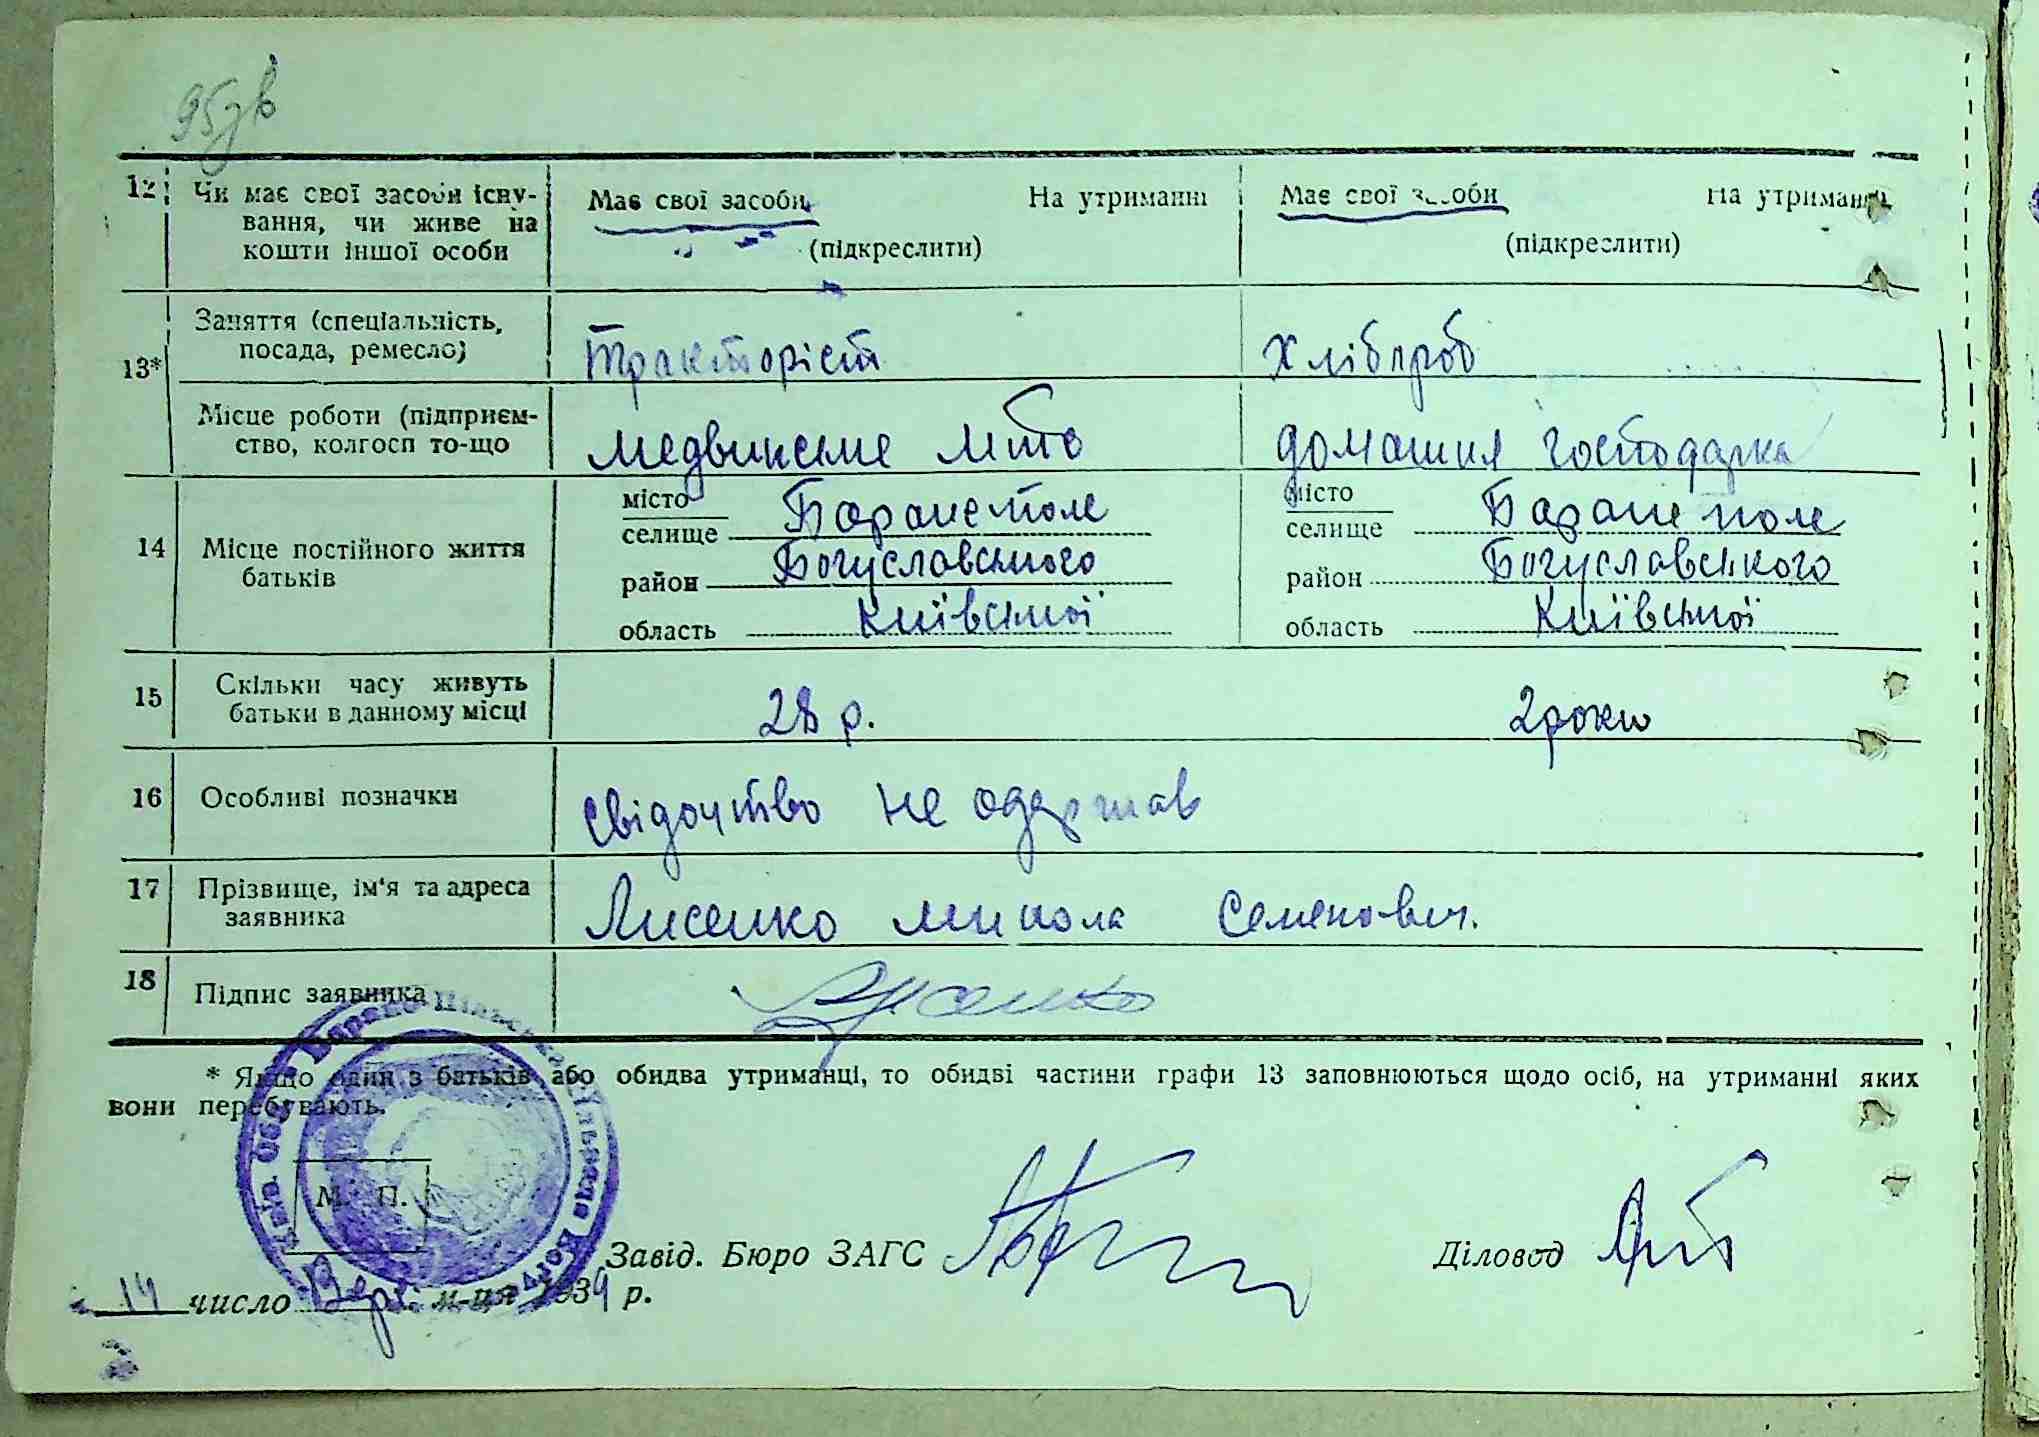 95зв
12 Чи має свої засоби існу-
вання, чи живе на
кошти іншої особи
Має свої засоби На утриманні
(підкреслити)
Має свої засоби На утриманні
(підкреслити)
13*
Заняття (спеціальність,
посада, ремесло)
Тракторіст
Хлібороб
Місце роботи (підприєм-
ство, колгосп то-що
Медвинське мтс
домашня господарка
14 Місце постійного життя
батьків
місто
селище Баранєполе
район Богуславського
область Київської
місто
селище Баранє поле
район Богуславського
область Київської
15 Скільки часу живуть
батьки в данному місці
28 р.
2 роки
16 Особливі позначки
свідочтво не одержав
17 Прізвище, ім'я та адреса
заявника
Лисенко микола Семенович.
18 Підпис заявника
Лисенко
* Якщо один з батьків або обидва утриманці, то обидві частини графи 13 заповнюються щодо осіб, на утриманні яких
вони перебувають.
М. П.
Завід. Бюро ЗАГС
Діловод
14 число Вер. м-ця 1939 р.